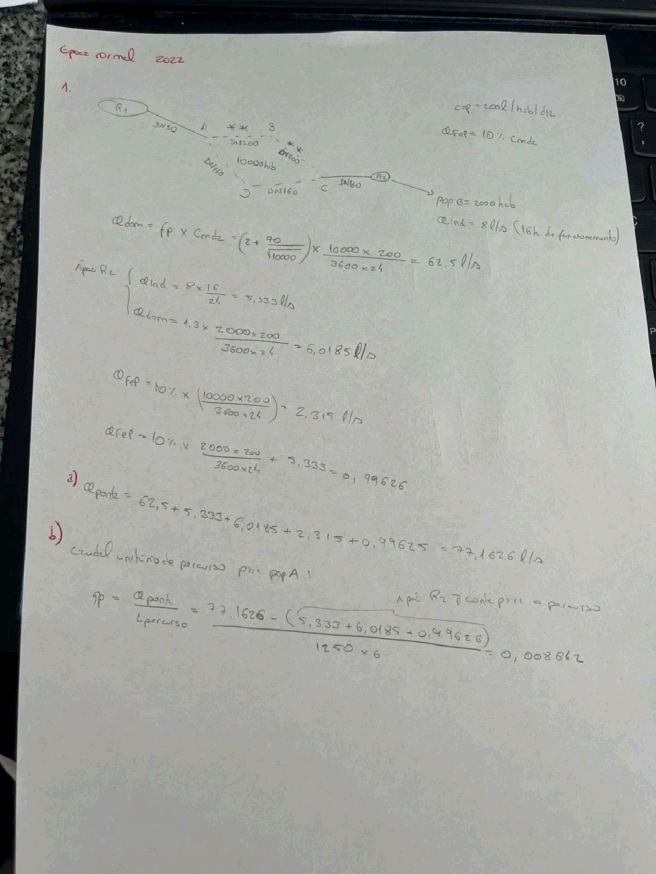 Epoca normal 2022
1.
R1
A ** B
**
DN200
DN200
DN160
10000hab
D
DN160
C
DN160
R2
cap = 200l/hab/dia
Qfep = 10% Cmda
pop B = 2000 hab
Qind = 8 l/s (16h de funcionamento)
Qdom = fp x Cmda = (2 + 70/√10000) x (10000 x 200)/(3600x24) = 62,5 l/s
Após R2
Qind = 8 x 16/24 = 5,333 l/s
Qdom = 1,3 x (2000x200)/(3600x24) = 6,0185 l/s
Qfep = 10% x ((10000x200)/(3600x24)) = 2,315 l/s
Qfep = 10% x (2000x200)/(3600x24) + 5,333 = 0,99626
a) Qponta = 62,5 + 5,333 + 6,0185 + 2,315 + 0,99625 = 77,1626 l/s
b) caudal unitário de percurso para pop A:
Após R2 ñ conta para o percurso
qp = Qponta/Lpercurso = (77,1626 - (5,333 + 6,0185 + 0,99626))/(1250 x 6) = 0,008642